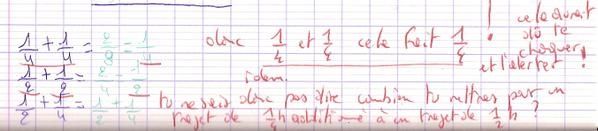 1/4 + 1/4 = 2/8 = 1/4
1/2 + 1/2 = 2/4 = 1/2
1/2 + 1/4 = 1/2 + 1/4
donc 1/4 et 1/4 cela fait 1/4 !
cela aurait
dû te
choquer
et t'alerter !
idem.
tu ne sais donc pas dire combien tu mettras pour un
trajet de 1/4 h additionné à un trajet de 1/2 h ?